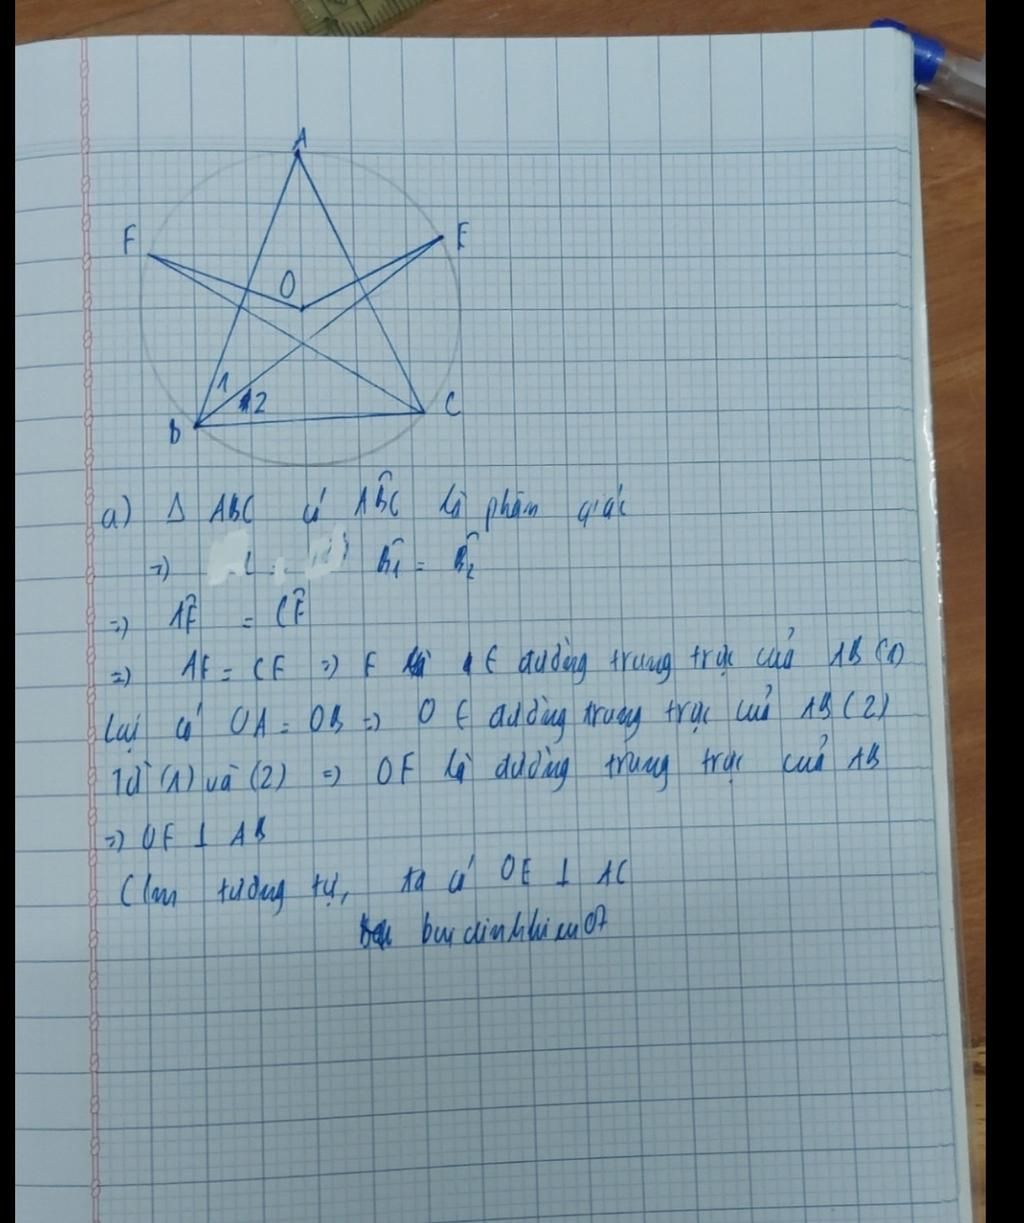 A
F
E
O
1
2
B
C
a) Δ ABC có ABC là phân giác
=> B1 = B2
=> AF = CF
=> AF = CF => F ∈ đường trung trực của AB (1)
Lại có OA = OB => O ∈ đường trung trực của AB (2)
Từ (1) và (2) => OF là đường trung trực của AB
=> OF ⊥ AB
Cm tương tự, ta có OE ⊥ AC